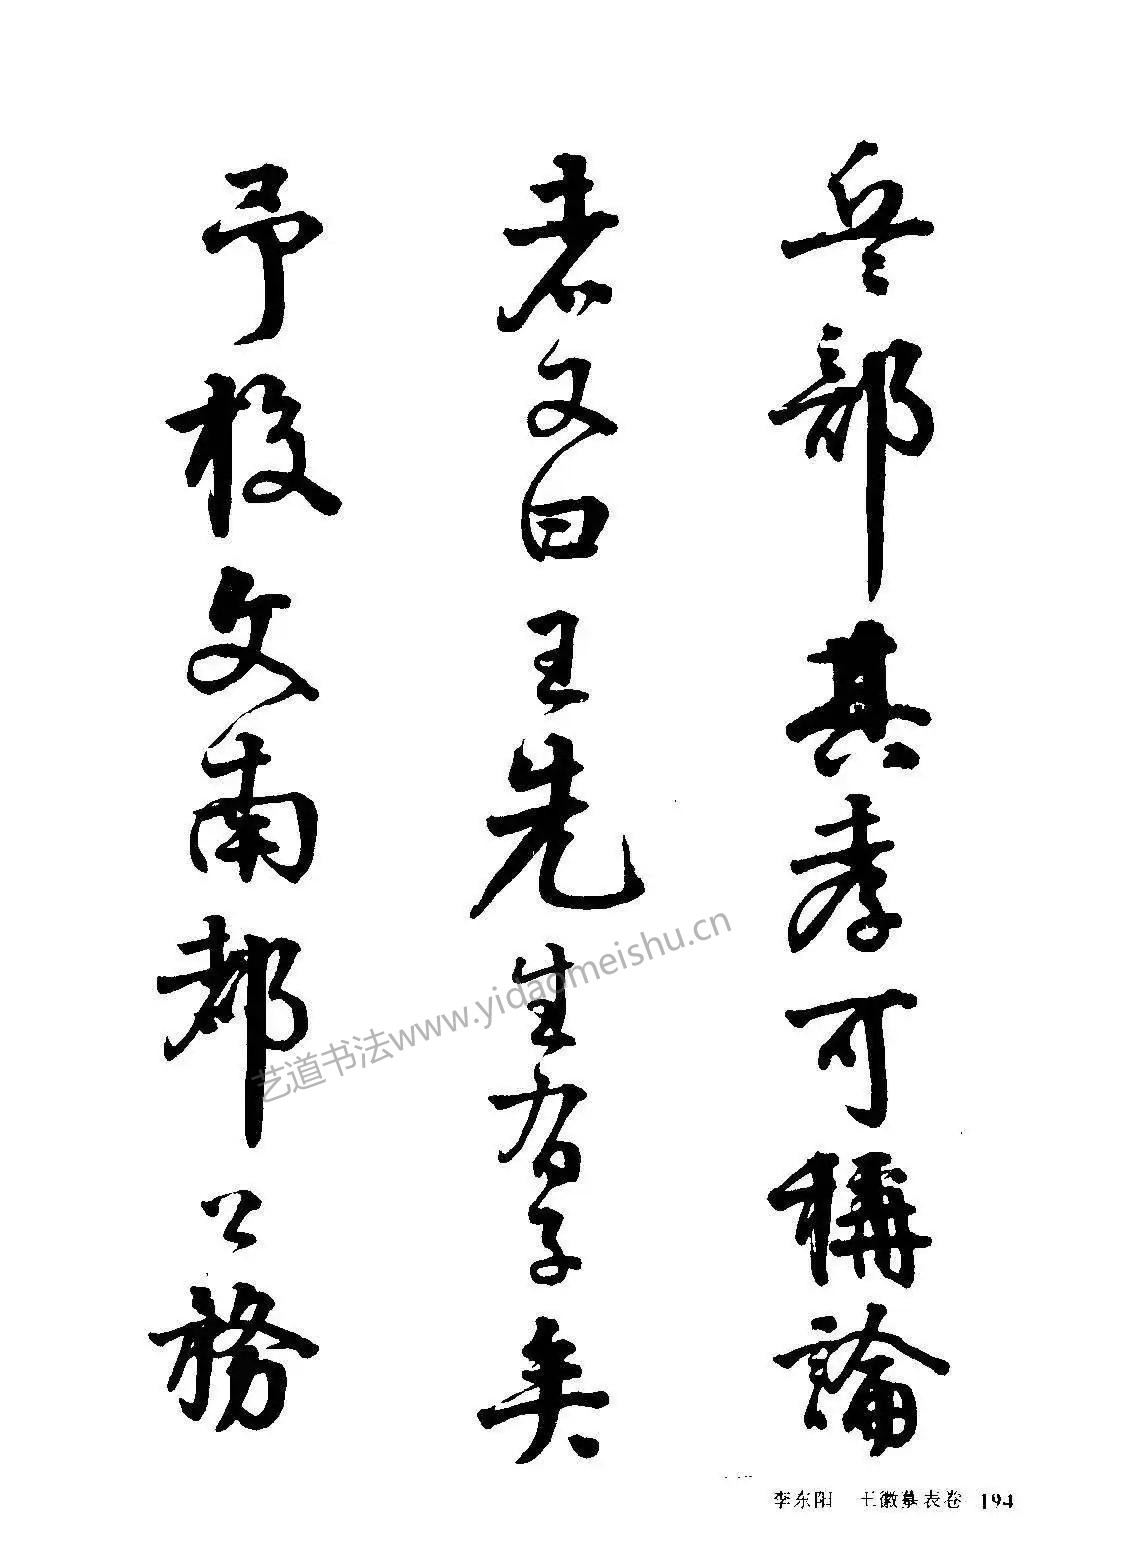 兵部其孝可稱論
者又曰王先生有子矣
予校文南都公務
艺道书法www.yidaomeishu.cn
李东阳 王徽墓表卷 194